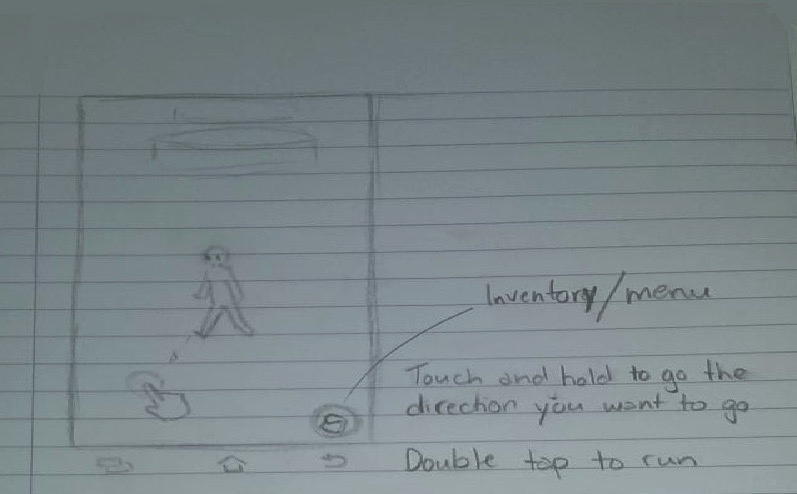 Inventory/menu
Touch and hold to go the
direction you want to go
Double tap to run